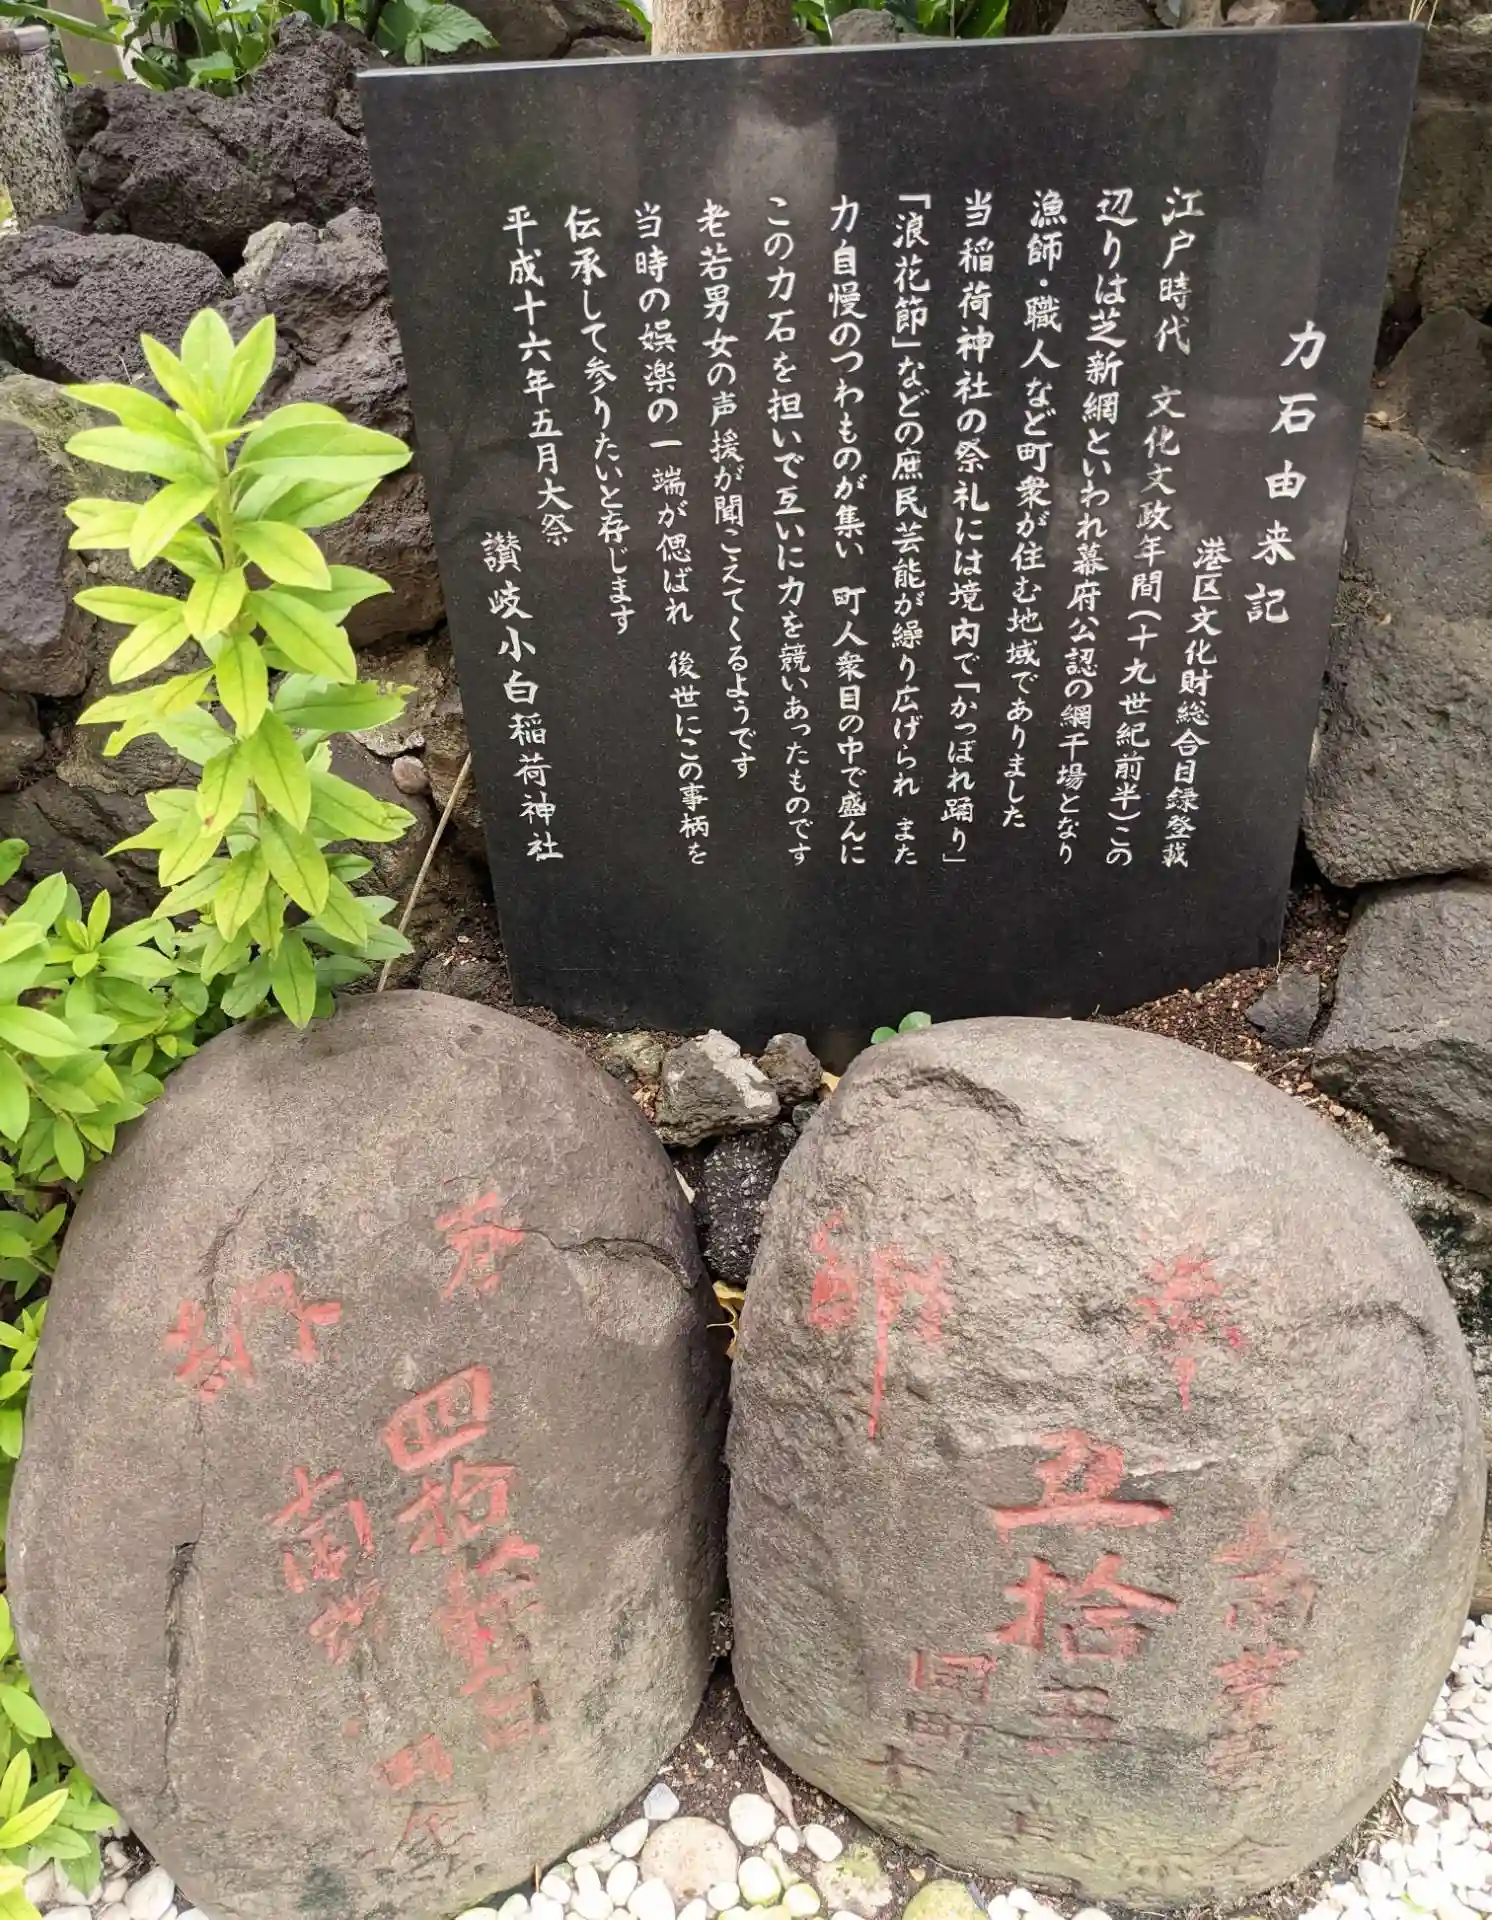 力石由来記
港区文化財総合目録登載
江戸時代 文化文政年間(十九世紀前半)この
辺りは芝新網といわれ幕府公認の網干場となり
漁師・職人など町衆が住む地域でありました
当稲荷神社の祭礼には境内で「かっぽれ踊り」
「浪花節」などの庶民芸能が繰り広げられ また
力自慢のつわものが集い 町人衆目の中で盛んに
この力石を担いで互いに力を競いあったものです
老若男女の声援が聞こえてくるようです
当時の娯楽の一端が偲ばれ 後世にこの事柄を
伝承して参りたいと存じます
平成十六年五月大祭
讃岐小白稲荷神社
奉
五拾五
同町
四拾